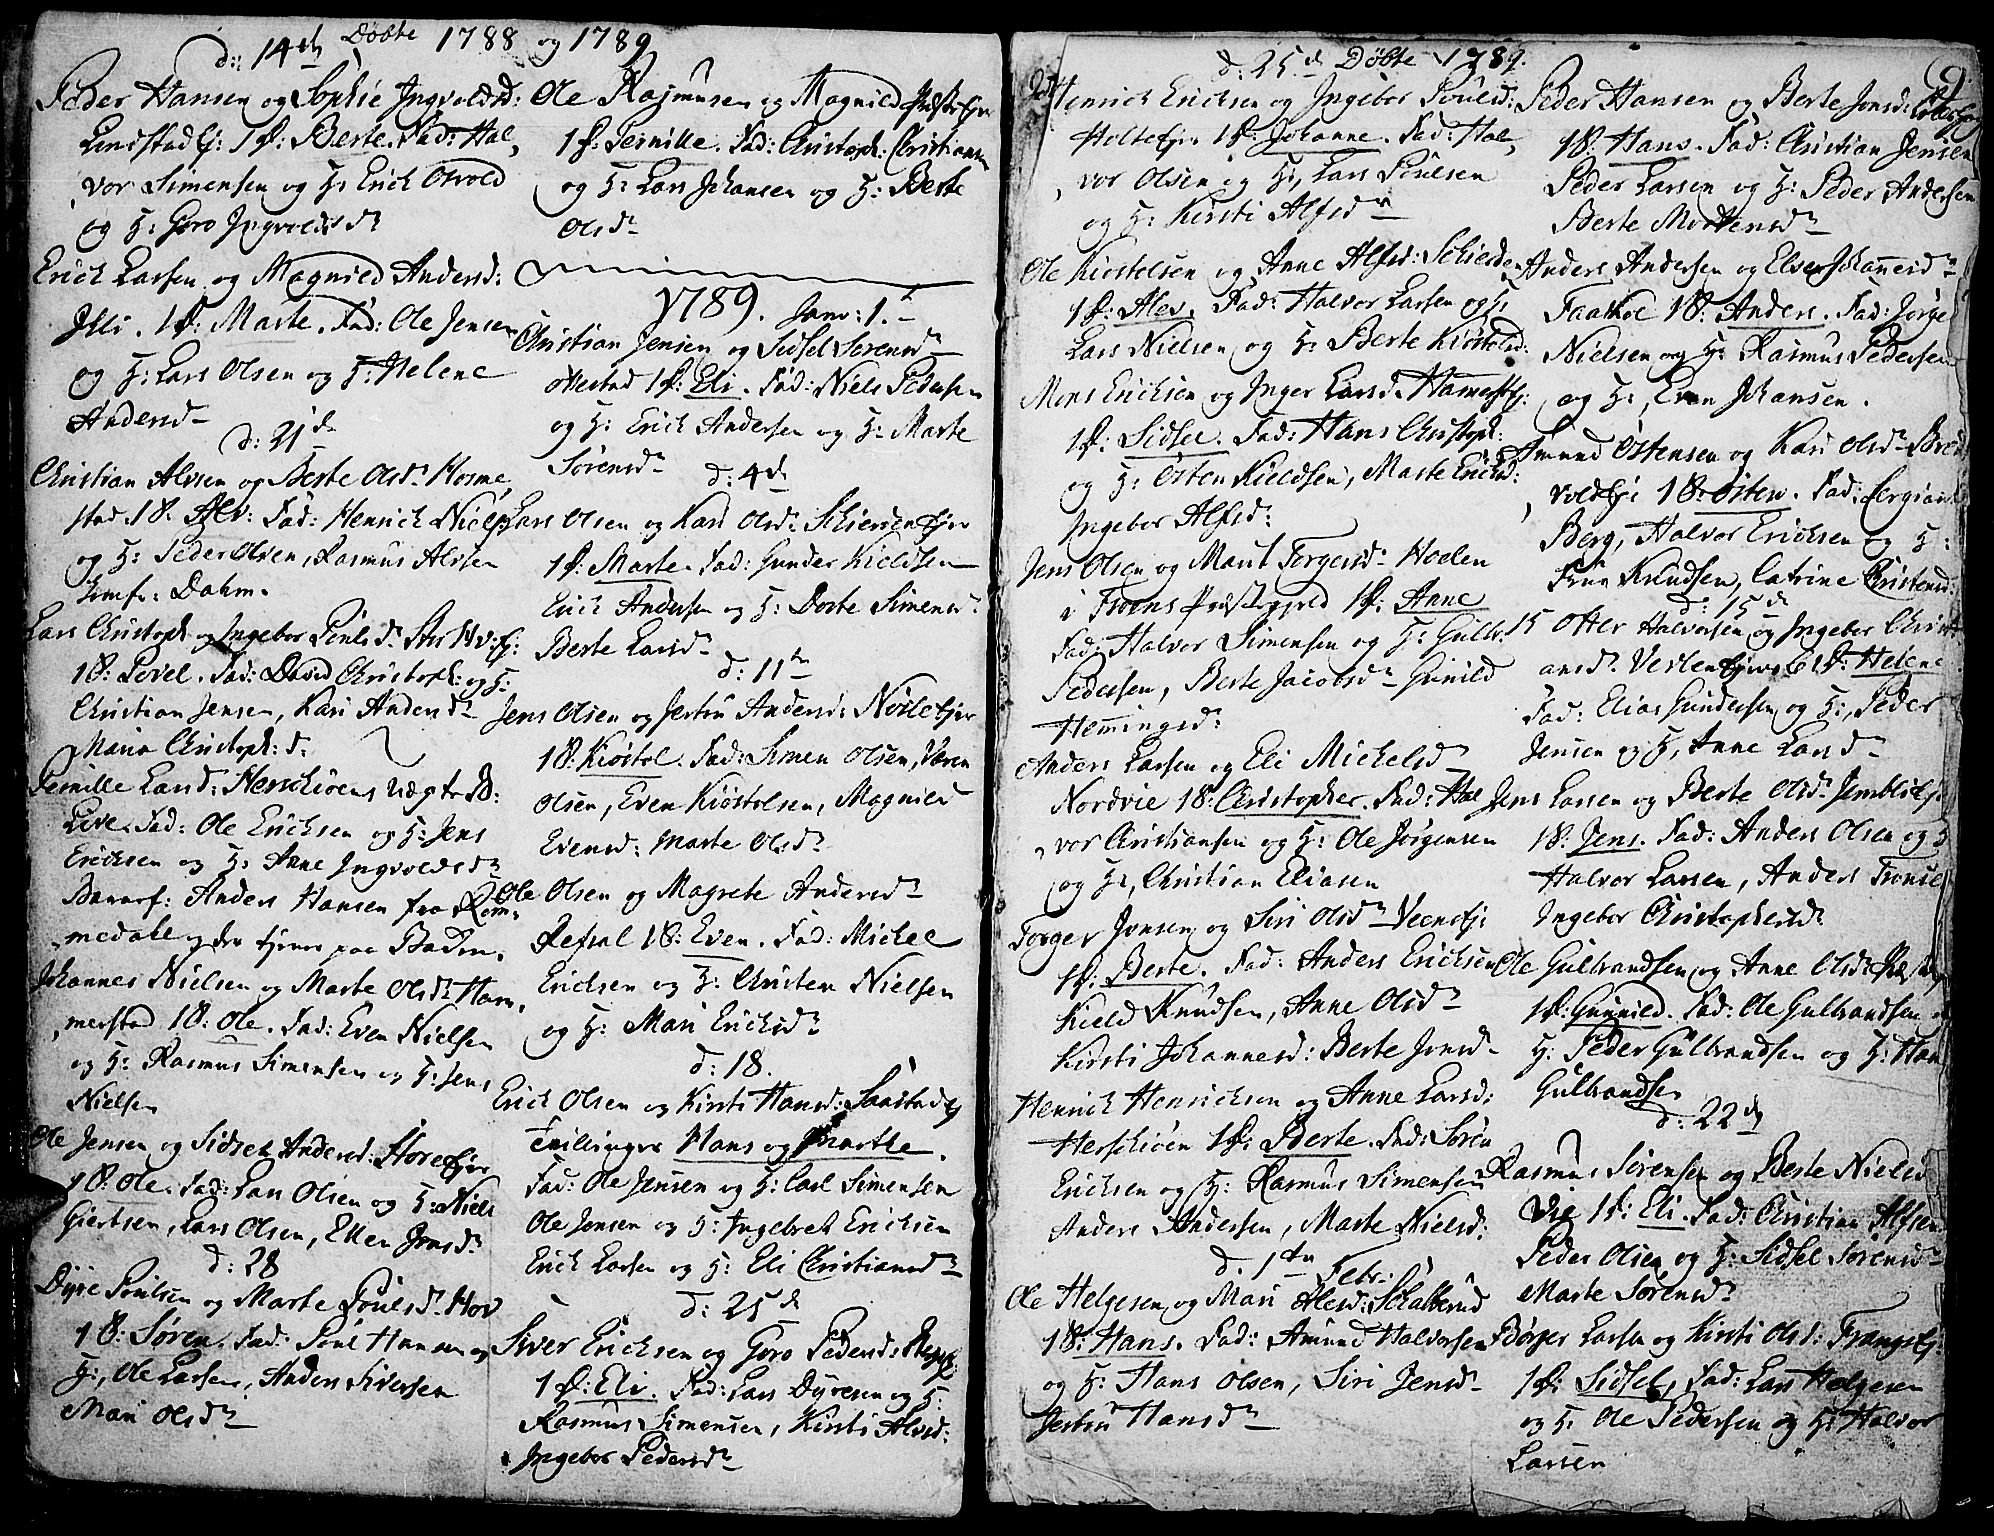 Døbte 1788 og 1789
d: 14de
Peder Hansen og Sophie Ingvoldsd:
Lindstad Ej: 1 P: Berte. Fad: Hal,
vor Simensen og H: Erich Osvold
og H: Goro Ingvoldsdr
Erich Larsen og Magnild Andersd:
Illi. 1 P: Marte. Fad: Ole Jensen
og H: Lars Olsen og H: Helene
Andersdr
d: 21de
Christian Alvsen og Berte Olsdr Hosme,
stad 1 B: Alv: Fad: Henrich Niels
og H: Peder Olsen, Rasmus Alvsen
Jomfr: Dahm.
Lars Christoph: og Ingebor Poulsdr
1 B: Povel. Fad: David Christoph: og H:
Christian Jensen, Kari Andersdr
Maria Christoph: d.
Pernille Larsd: Herschioens uægte B:
Live. Fad: Ole Ericksen og H: Jens
Ericksen og H: Anne Ingvoldsdr
Barnef: Anders Hansen fra Rom,
medahl og der tjener paa
Johannes Nielsen og Marte Olsdr Ham,
merstad 1 B: Ole. Fad: Even Nielsen
og H: Rasmus Simensen og H: Jens
Nielsen
Ole Jensen og Sidsel Andersd:
1 B: Ole. Fad: Lars Olsen og H: Niels
Giertsen, Lars Olsen, Ellen Jensdr
d: 28
Dyre Poulsen og Marte Poulsdr Hov
1 B: Søren. Fad: Poul Hansen og
H:, Ole Larsen, Anders Siversen
Mari Olsdr
Ole Rasmusen og Magnild
1 P: Pernille. Fad: Christoph: Christians
og H: Lars Johansen og H: Berte
Olsdr
1789. Janv: 1.
Christian Jensen og Sidsel Sørensdr
Ottestad 1 P: Eli. Fad: Niels Pedersen
og H: Erich Andersen og H: Marte
Sørensdr
d: 4de
Lars Olsen og Kari Olsdr
1 P: Marte. Fad: Gunder Kieldsen
Erich Andersen og H: Dorte Simensdr
Berte Larsdr
d: 11te
Jens Olsen og Jertru Andersd:
1 B: Kiøstol. Fad: Simen Olsen, Søren
Olsen, Even Kiøstolsen, Magnild
Evensd: Marte Olsdr
Ole Olsen og Magrete Andersdr
Refsal 1 B: Even. Fad: Michel
Ericksen og H: Christen Nielsen
og H: Mari Ericksdr
d: 18.
Erich Olsen og Kirsti Hansd: Saastad Ej
Tvillinger Hans og Marthe.
Fad: Ole Jensen og H: Carl Simensen
Ole Jonsen og H: Ingebret Ericksen
Erich Larsen og H: Eli Christiansdr
d: 25de
Siver Ericksen og Goro Pedersd:
1 P: Eli. Fad: Lars Dyresen og H:
Rasmus Simensen, Kirsti Alvsd:
Ingebor Pedersdr
d: 25de Døbte 1789.
Henrich Ericksen og Ingebor Poulsd:
Holte Ejr 1 P: Johanne. Fad: Hal,
vor Olsen og H:, Lars Poulsen
og H: Kirsti Alfsdr
Ole Kiøstelsen og Anne Alfsd:
1 P: Alev. Fad: Halvor Larsen og H:
Lars Nielsen og H: Berte Kiøstelsd:
Mons Ericksen og Inger Larsd.
1 P: Sidsel. Fad: Hans Christoph:
og H: Østen Kieldsen, Marte Ericksd:
Ingebor Alfsd:
Jens Olsen og Marit Torgersdr Hoelen
i Trøens Præstegield 1 P: Anne
Fad: Halvor Simensen og H: Gulbr.
Pedersen, Berte Jacobsdr Gunild
Hemmingsd:
Anders Larsen og Eli Michelsdr
Nordvie 1 B: Christopher. Fad: Hal
vor Christiansen og H: Ole Jørgensen
og H:, Christian Eliasen
Torger Jonsen og Siri Olsdr
1 P: Berte. Fad: Anders Ericksen
Kield Knudsen, Anne Olsdr
Kirsti Johannesd: Berte Jonsdr
Henrich Henricksen og Anne Larsd:
Herschiøen 1 P: Berte. Fad: Søren
Ericksen og H: Rasmus Simensen
Anders Andersen, Marte Nielsd:
d. 1ten Febr:
Ole Helgesen og Mari Alvsd:
1 B: Hans. Fad: Amund Halvorsen
og H: Hans Olsen, Siri Jensdr
Jertru Hansdr
9
Peder Hansen og Berte Jonsd:
1 B: Hans. Fad: Christian Jensen
Peder Larsen og H: Peder Andersen
Berte Mortensdr
Anders Andersen og Elsen Johannesdr
Taathoe 1 B: Anders. Fad: Jørge
Nielsen og H: Rasmus Pedersen
og H:, Even Johansen.
Amund Østensen og Kari Olsdr
vold Eje 1 B: Østen. Fad:
Berg, Halvor Ericksen og H:
Knudsen, Catrine Christensd:
d: 15de
Otter Halvorsen og Ingebor Christ
ansdr 1 P: Helene
Fad: Elias Gundersen og H:, Peder
Jensen og H, Anne Larsdr
Jens Larsen og Berte Olsdr
1 B: Jens. Fad: Anders Olsen og H
Halvor Larsen, Anders
Ingebor Christophersdr
Ole Gulbrandsen og Anne Olsdr
1 P: Gunild. Fad: Ole Gulbrandsen
H: Peder Gulbrandsen og H: Han
Gulbrandsen
d: 22de
Rasmus Sørensen og Berte Nielsd
Vie 1 P: Eli. Fad: Christian Alfsen
Peder Olsen og H: Sidsel Sørensdr
Marte Sørensdr
Børger Larsen og Kirsti Olsd:
1 P: Sidsel, Fad: Lars Helgesen
og H: Ole Pedersen og H: Halvor
Larsen